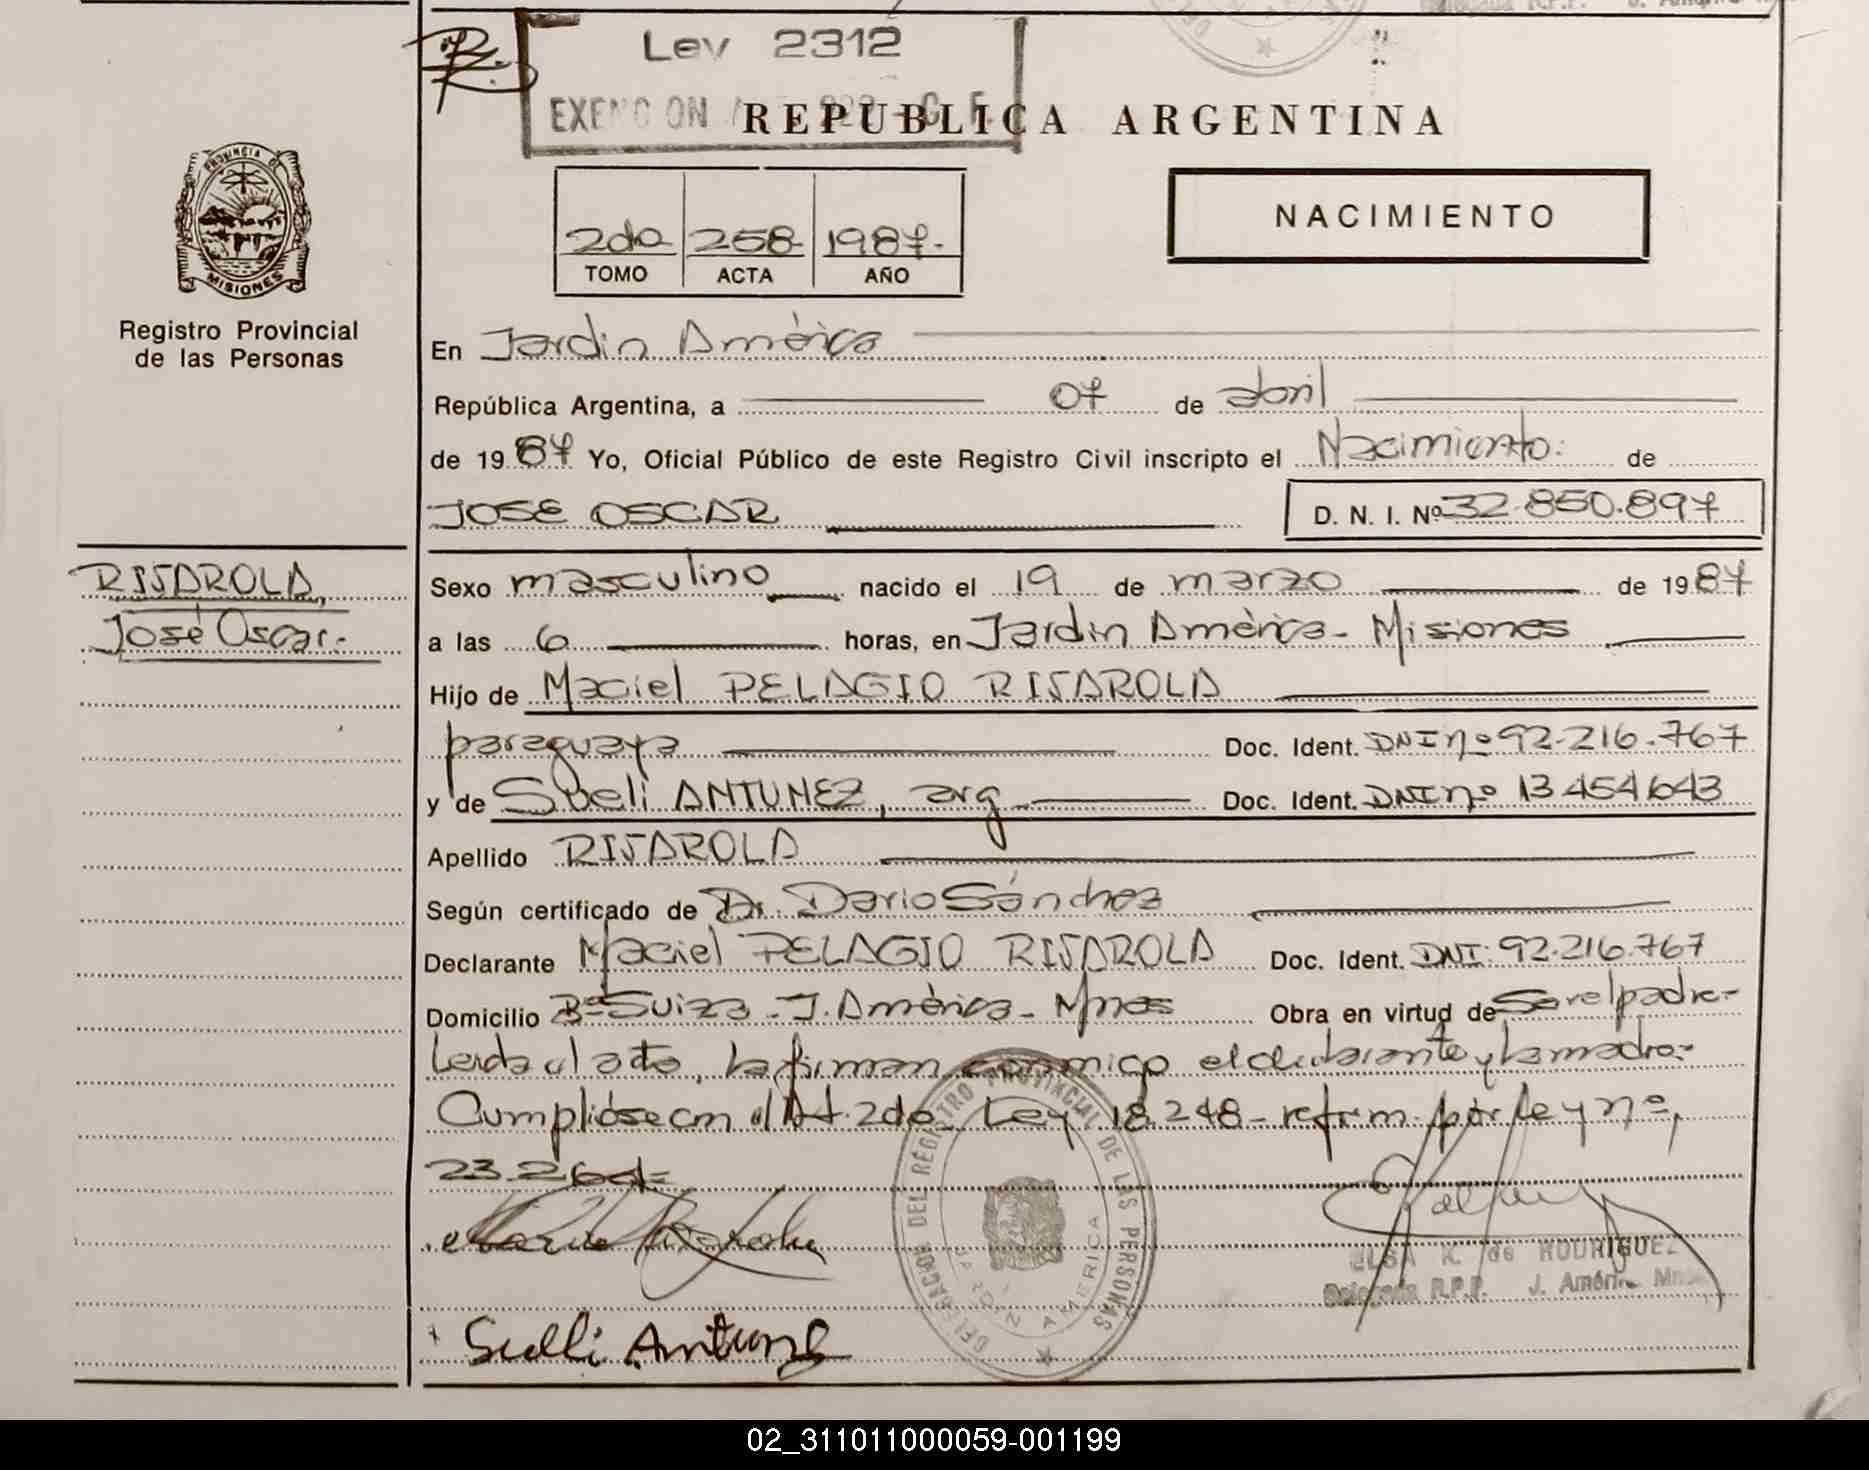 Ley 2312
EXENCION
REPUBLICA ARGENTINA
PROVINCIA DE
MISIONES
Registro Provincial
de las Personas
2do 258 1987.-
TOMO ACTA AÑO
NACIMIENTO
En Jardin América
República Argentina, a 07 de abril
de 1987 Yo, Oficial Público de este Registro Civil inscripto el Nacimiento: de
JOSE OSCAR D. N. I. Nº 32.850.897
RIJAROLA,
José Oscar.-
Sexo masculino nacido el 19 de marzo de 1987
a las 6 horas, en Jardin América - Misiones
Hijo de Maciel PELAGIO RIJAROLA
paraguaya Doc. Ident. DNI nº 92.216.767
y de Sueli ANTUNEZ, arg Doc. Ident. DNI nº 13454643
Apellido RIJAROLA
Según certificado de Dr. Dario Sánchez
Declarante Maciel PELAGIO RIJAROLA Doc. Ident. DNI: 92.216.767
Domicilio Bº Suiza - J. América - Mnes Obra en virtud de Ser el padre.-
Leida el acta, la firman conmigo el declarante y la madre.-
Cumplióse con el Art. 2do Ley 18.248 - reform. por Ley nº,
23.264=
DELEGACION DEL REGISTRO PROVINCIAL DE LAS PERSONAS
JARDIN AMERICA
ELSA K. de RODRIGUEZ
Delegada R.P.P. J. América Mnes
Suelli Antunes
02_311011000059-001199